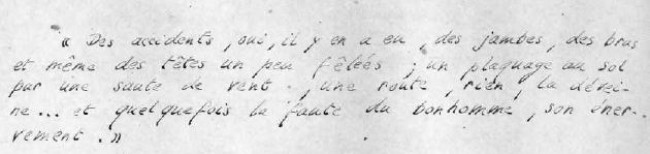 « Des accidents, oui, il y en a eu, des jambes, des bras
et même des têtes un peu fêlées ; un plaquage au sol
par une saute de vent., une route, rien, la dévei-
ne... et quelquefois la faute du bonhomme, son éner-
vement. »